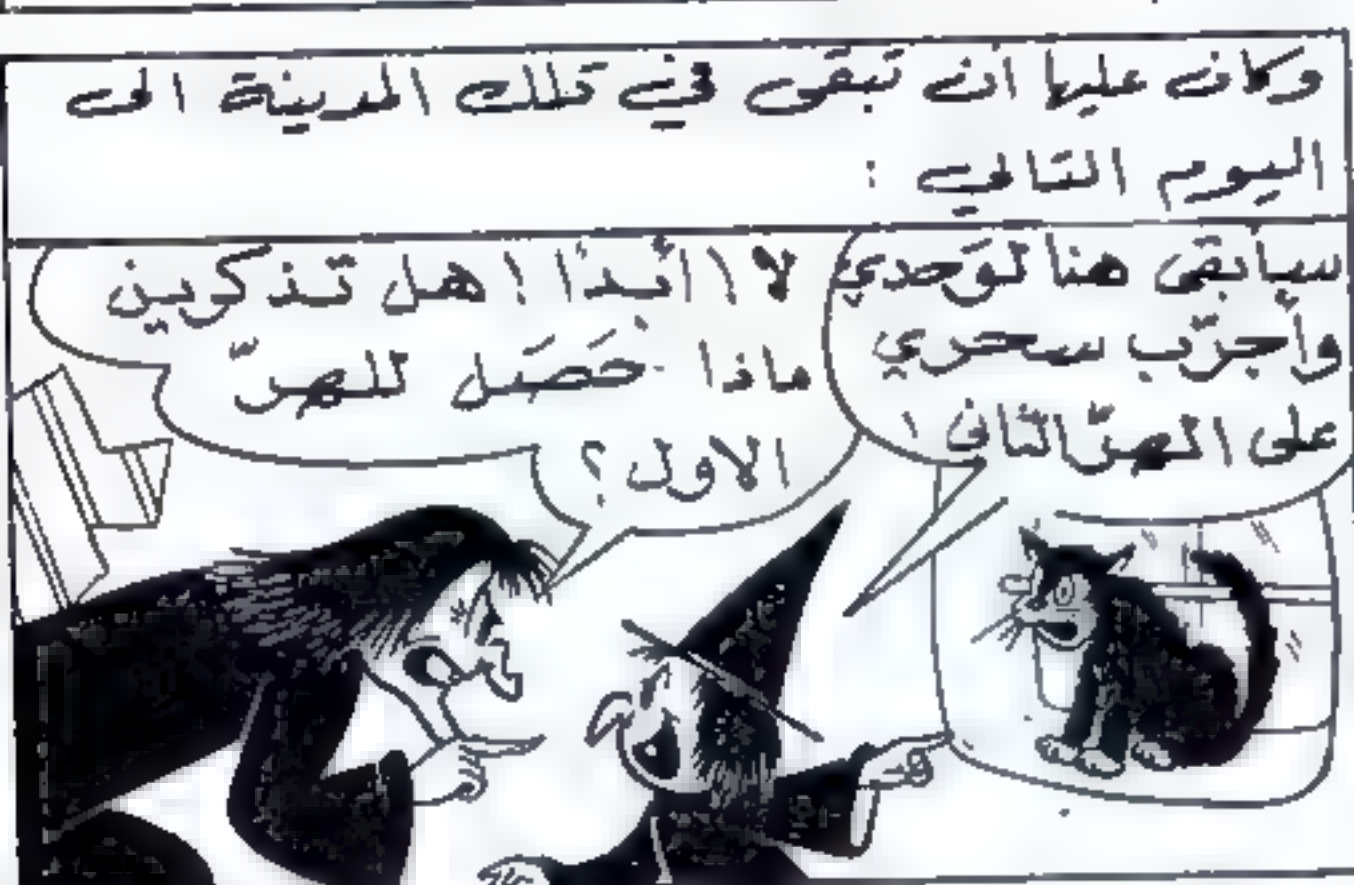 وكان عليها ان تبقى في تلك المدينة الى
اليوم التالي :
سأبقى هنا لوَحدي
وأجرّب سحري
على الهرّ الثاني !
لا ! أبدًا ! هل تذكرين
ماذا حَصَل للهرّ
الاول ؟